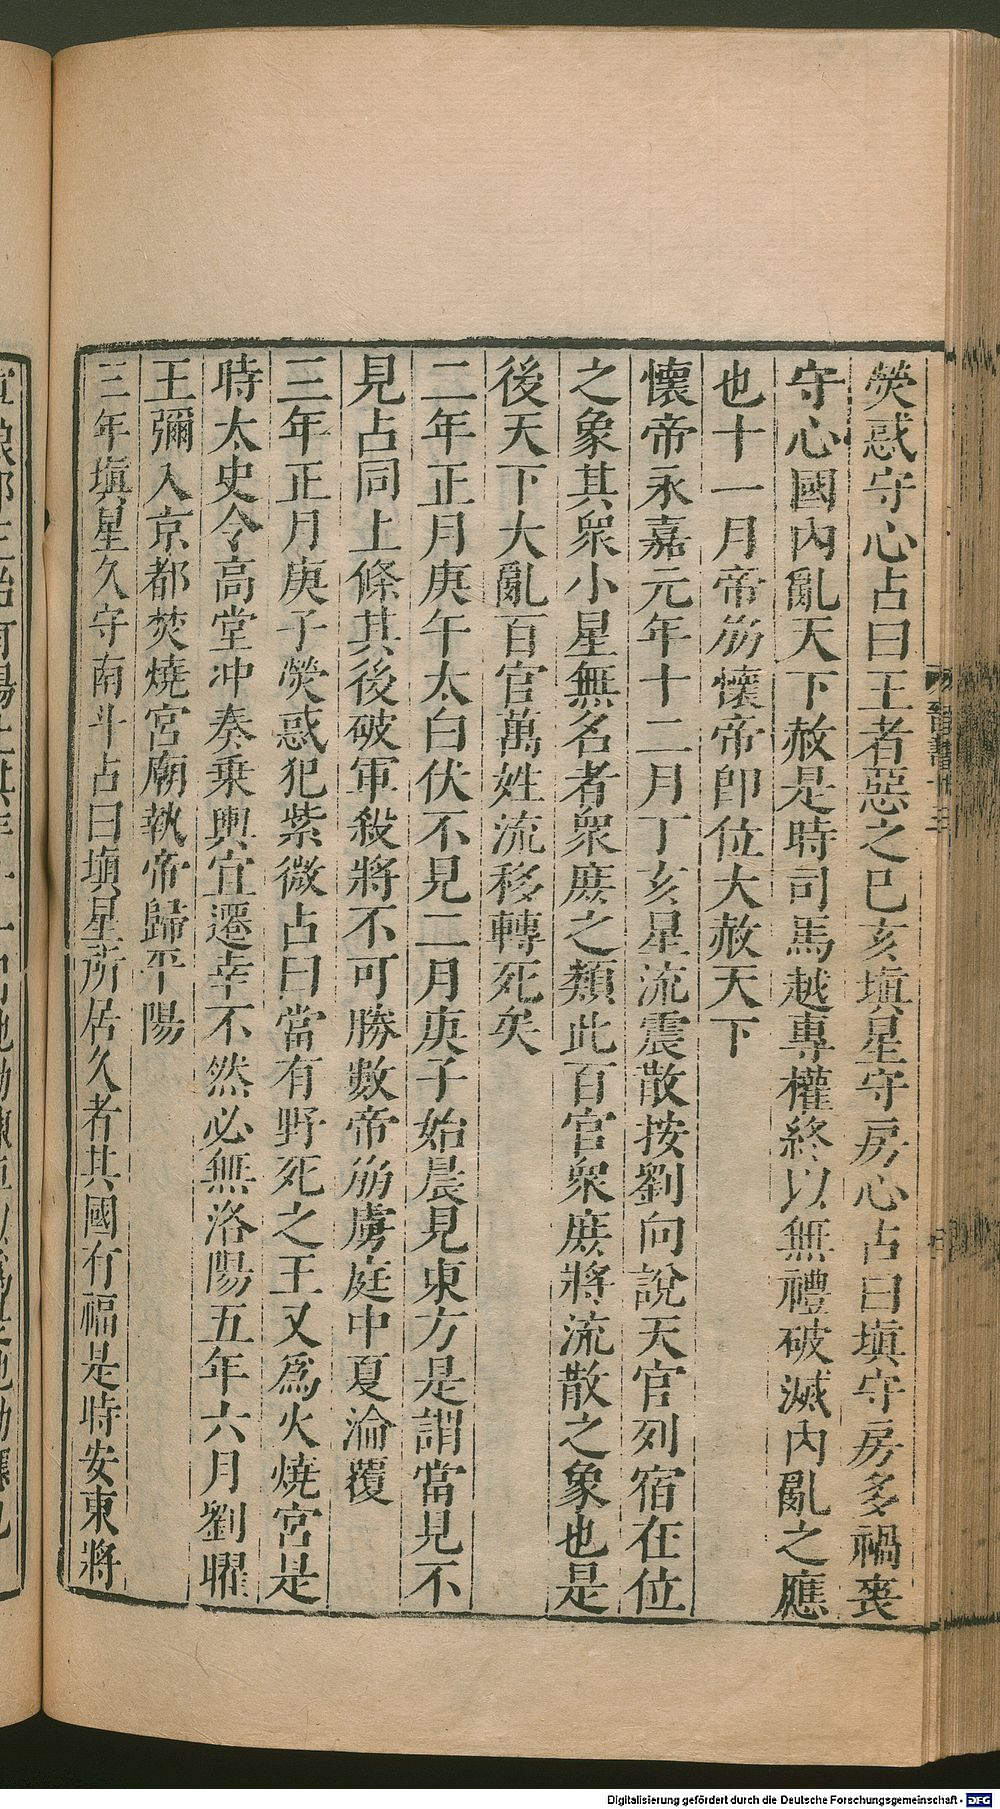 熒惑守心占曰王者惡之巳亥塡星守房心占曰塡守房多禍喪
守心國內亂天下赦是時司馬越專權終以無禮破滅內亂之應
也十一月帝崩懷帝即位大赦天下
懷帝永嘉元年十二月丁亥星流震散按劉向說天官列宿在位
之象其衆小星無名者衆庶之類此百官衆庶將流散之象也是
後天下大亂百官萬姓流移轉死矣
二年正月庚午太白伏不見二月庚子始晨見東方是謂當見不
見占同上條其後破軍殺將不可勝數帝崩虜庭中夏淪覆
三年正月庚子熒惑犯紫微占曰當有野死之王又爲火燒宮是
時太史令高堂冲奏乗輿宜遷幸不然必無洛陽五年六月劉曜
王彌入京都焚燒宮廟執帝歸平陽
三年塡星久守南斗占曰塡星所居久者其國有福是時安東將
晉書十三
Digitalisierung gefördert durch die Deutsche Forschungsgemeinschaft - DFG